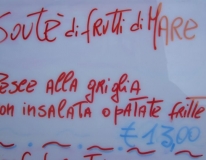 SOUTÈ di fRUTTi di MARE
PESCE ALLA GRIGLIA
CON INSALATA O PATATE FRITTE
€ 13,00